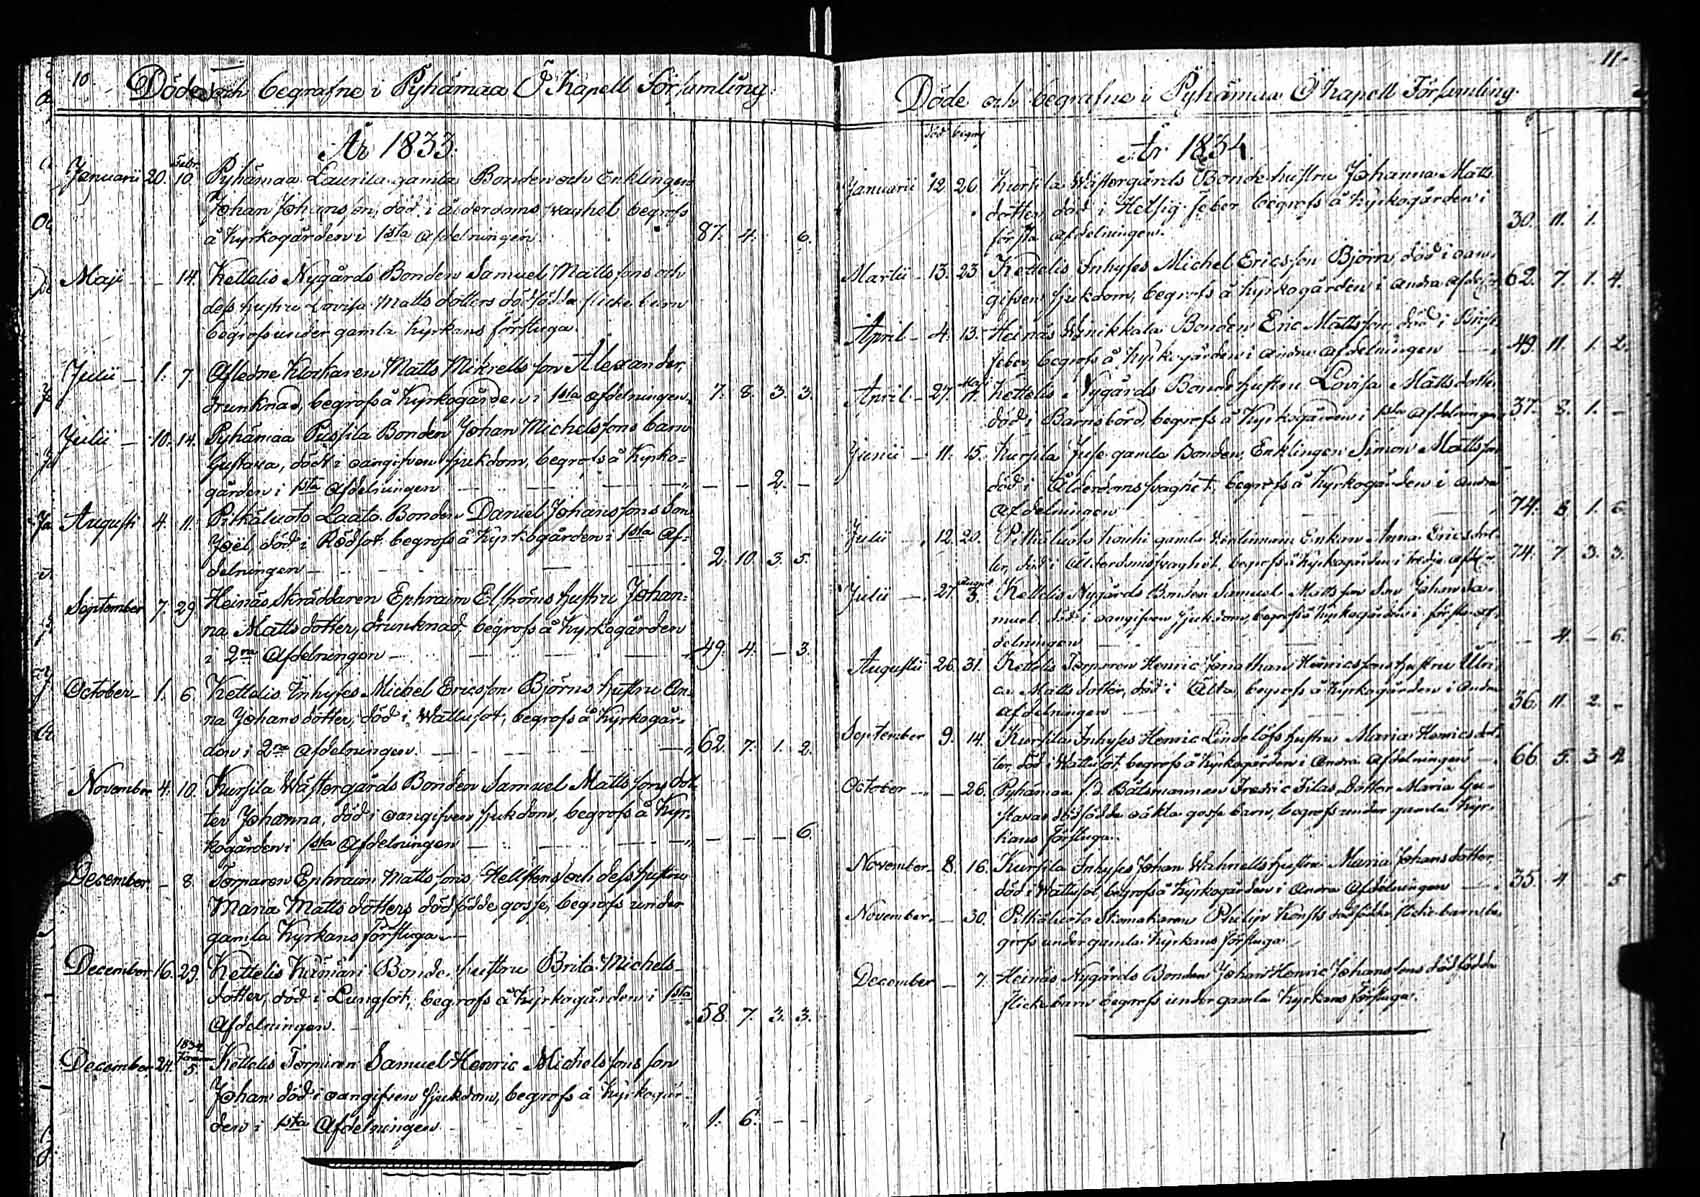 10.
Döde och begrafne i Pyhämaa Ö Kapell Församling.
År 1833.
Januarii 20. Febr. 10. Pyhämaa Laurila gamla Bonden och Enklingen
Johan Johansson, död i ålderdoms svaghet, begrofs
å Kyrkogården i 1sta Afdelningen. 87. 4. 6.
Maji — 14. Kettelis Nygårds Bonden Samuel Mattssons och
dess hustru Lovisa Matts dotters dödfödda flicke barn
begrofs under gamla Kyrkans förstuga.
Julii — 1. 7. Afledne Klockaren Matts Mikrells son Alexander,
drunknad, begrofs å Kyrkogården i 1sta afdelningen. 7. 8. 3. 3.
Julii — 10. 14. Pyhämaa Pussila Bonden Johan Michelssons barn
Gustava, dödt i oangifven sjukdom, begrofs å Kyrko=
gården i 1sta Afdelningen — — — 2. —
Augusti 4. 11. Pitkäluoto Laato Bonden Daniel Johanssons Son
Joël, död i Rödsot, begrofs å Kyrkogården i 1sta Af=
delningen — 2. 10. 3. 5.
September 7. 29. Heinäs Skräddaren Ephraim Elströms hustru Johan=
na Matts dotter, drunknad, begrofs å Kyrkogården
i 2ra Afdelningen — 49. 4. — 3.
October — 1. 6. Kettelis Inhyses Michel Ericsson Björns hustru An=
na Johans dotter, död i Wattusot, begrofs å Kyrkogår=
den i 2ra Afdelningen. — 62. 7. 1. 2.
November 4. 10. Kursila Wästergårds Bonden Samuel Mattssons dot=
ter Johanna, död i oangifven sjukdom, begrofs å Kyr=
kogården i 1sta Afdelningen — — — — 6.
December — 8. Torparen Ephraim Mattssons Hellstens och dess hustru
Maria Matts dotters dödfödde gosse, begrofs under
gamla Kyrkans förstuga —
December 16. 29. Kettelis Bonde hustru Brita Michels=
dotter, död i Lungsot, begrofs å Kyrkogården i 1sta
Afdelningen. 58. 7. 3. 3.
December 24. 1834. 5. Kettelis Torparen Samuel Henric Michelssons son
Johan död i oangifven sjukdom, begrofs å Kyrkogår=
den i 1sta Afdelningen 1. 6. — —
11.
Döde och begrafne i Pyhämaa Ö Kapell Församling.
död begraf
År 1834.
Januarii 12. 26. Kursila Wästergårds Bonde hustru Johanna Matts
dotter, död i Hetsig feber begrofs å Kyrkogården i
första Afdelningen. 30. 11. 1.
Martii — 13. 23. Kettelis Inhyses Michel Ericsson Björn, död i oan=
gifven sjukdom, begrofs å Kyrkogården i andra Afdeln: 62. 7. 1. 4.
April — 4. 13. Heinäs Bonden Eric Mattsson, död i Bröst
feber, begrofs å Kyrkogården i andra afdelningen — 49. 11. 1. 2.
April — 27. Maji 11. Kettelis Nygårds Bonde hustru Lovisa Matts dotter,
död i Barnsbörd, begrofs å Kyrkogården i 1sta Afdelningen 37. 8. 1. —
Junii — 11. 15. Kursila gamla Bonden, Enklingen Simon Mattsson
död i Ålderdomssvaghet, begrofs å Kyrkogården i andra
Afdelningen 74. 8. 1. 6.
Julii — 12. 20. Pitkäluoto gamla Enkan Anna Erics dot=
ter, död i Ålderdomssvaghet, begrofs å Kyrkogården i tredje Afdeln: 74. 7. 3. 3.
Julii — 27. August 3. Kettelis Nygårds Bonden Samuel Mattsson Son Johan Sa=
muel död i oangifven sjukdom, begrofs å Kyrkogården i första af=
delningen — 4. — 6.
Augusti 26. 31. Kettelis Torparen Henric Jonathan Henricssons hustru Ulri=
ca Matts dotter, död i Älta, begrofs å Kyrkogården i andra
afdelningen — 36. 11. 2. —
September 9. 14. Kursila Inhyses Henric Lindelöfs hustru Maria Henrics dot=
ter, död i Wattusot, begrofs å Kyrkogården i andra Afdelningen — 66. 5. 3. 4.
October — — 26. Pyhämaa f.d. Båtsmannen Fredric Silas Dotter Maria Gu=
stavas dödfödda oäkta gosse barn, begrofs under gamla Kyr=
kans förstuga.
November 8. 16. Kursila Inhyses Johan hustru Maria Johans dotter,
död i Wattusot, begrofs å Kyrkogården i andra Afdelningen — 35. 4. — 5.
November — 30. Pitkäluoto Skomakaren Philip dödfödda flicke barn, be=
grofs under gamla Kyrkans förstuga.
December — 7. Heinäs Nygårds Bonden Johan Henric Johanssons dödfödda
flicke barn begrofs under gamla Kyrkans förstuga.